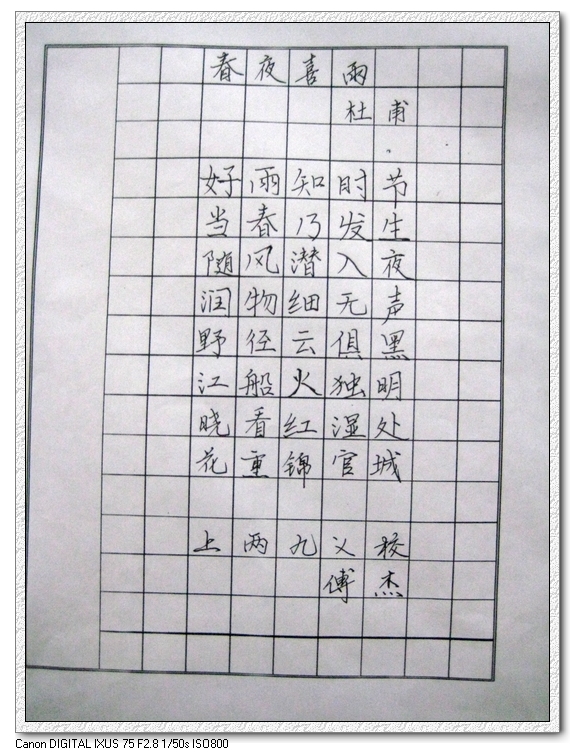 春夜喜雨
杜甫
好雨知时节
当春乃发生
随风潜入夜
润物细无声
野径云俱黑
江船火独明
晓看红湿处
花重锦官城
上两九义校
傅杰
Canon DIGITAL IXUS 75 F2.8 1/50s ISO800